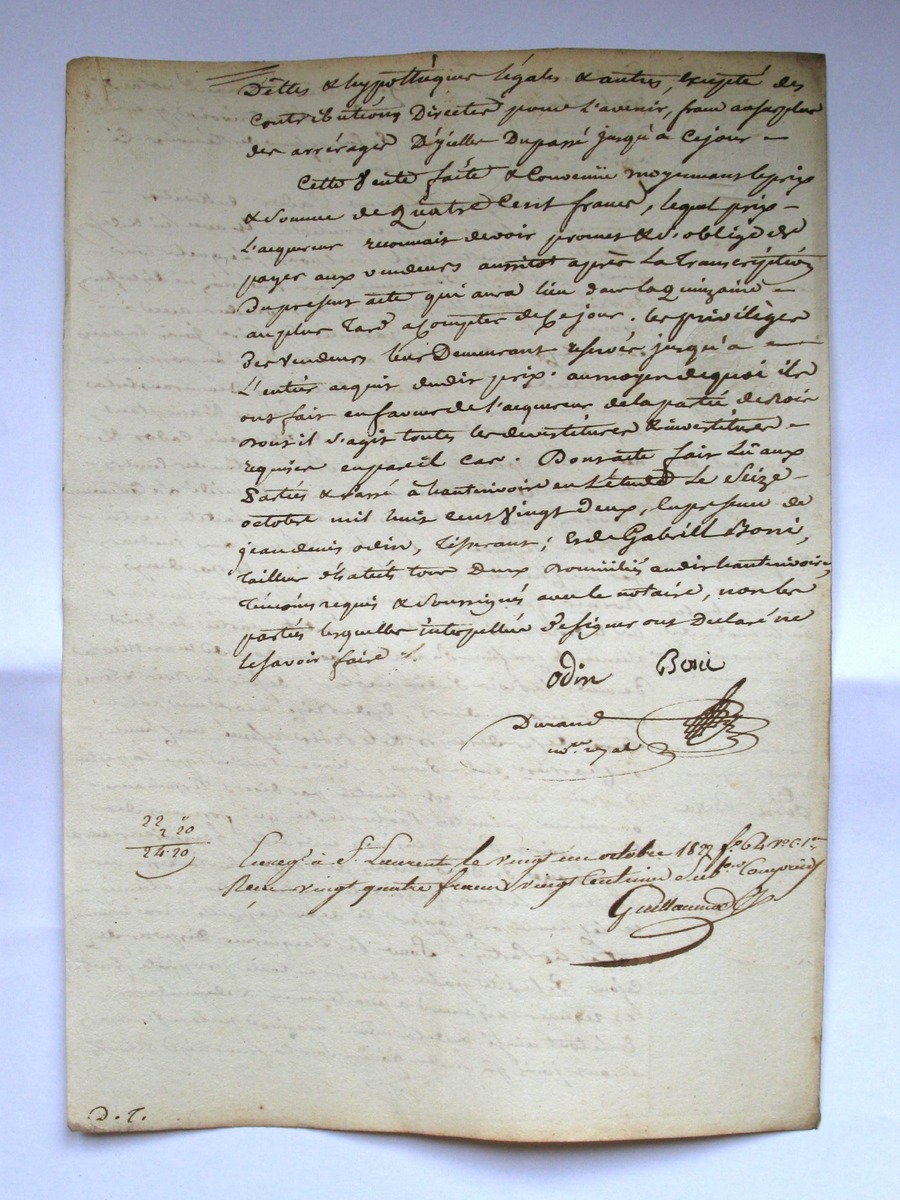 Dettes & hypothèques légales & autres, excepté des
Contributions Directes pour l'avenir, franc au surplus
des arrérages D'ycelles Du passé jusqu'à Cejour -
Cette Vente faite & Convenüe moyennant le prix
& Somme de Quatre Cent francs, lequel prix -
L'acquereur reconnait devoir promet & s'oblige de
payer aux vendeurs aussitot après La Transcription
Du present acte qui aura lieu dans la Quinzaine -
au plus Tard a Compter de Ce jour. les privilèges
Des vendeurs leur Demeurant reservés jusqu'à -
L'entier acquit dudit prix. au moyen de quoi ils
ont fait en faveur de l'acquereur de la partie de Bois
dont il s'agit toutes les devestitures & investitures -
requises en pareil cas. Dont acte fait Lû aux
Parties & Passé à hauterivoire en L'étude Le Seize -
octobre mil huit cent Vingt Deux, En presence de
jean denis odin, Tisserant; & de Gabriel Boni,
Tailleur d'habits tous Deux Domiciliés audit hauterivoire,
Témoins requis & Soussignés avec le notaire, non les
parties lesquelles interpellées De Signer ont Declaré ne
le savoir faire ./.
Odin Boni
Durand
nore royal
22 "
2 20
24.20
Enregé à St Laurent le vingt un octobre 1822 fo 64 ro C 1re
Reçu vingt quatre francs vingt Centimes Subon Comprise
Guillaumod
D. T.